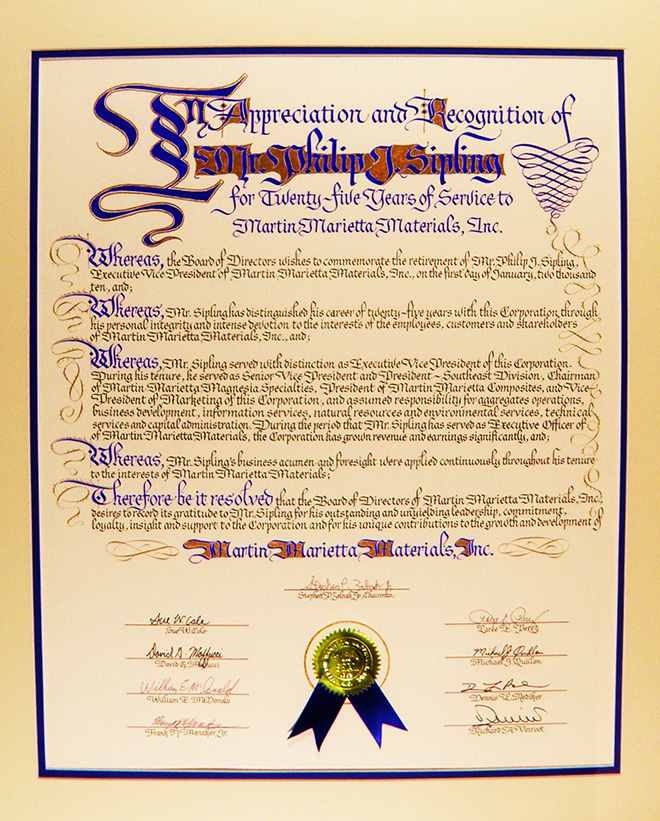 In Appreciation and Recognition of
Mr. Philip J. Sipling
for Twenty-five Years of Service to
Martin Marietta Materials, Inc.
Whereas, the Board of Directors wishes to commemorate the retirement of Mr. Philip J. Sipling,
Executive Vice President of Martin Marietta Materials, Inc., on the first day of January, two thousand
ten, and;
Whereas, Mr. Sipling has distinguished his career of twenty-five years with this Corporation through
his personal integrity and intense devotion to the interests of the employees, customers and shareholders
of Martin Marietta Materials, Inc., and;
Whereas, Mr. Sipling served with distinction as Executive Vice President of this Corporation.
During his tenure, he served as Senior Vice President and President - Southeast Division, Chairman
of Martin Marietta Magnesia Specialties, President of Martin Marietta Composites, and Vice
President of Marketing of this Corporation, and assumed responsibility for aggregates operations,
business development, information services, natural resources and environmental services, technical
services and capital administration. During the period that Mr. Sipling has served as Executive Officer of
of Martin Marietta Materials, the Corporation has grown revenue and earnings significantly, and;
Whereas, Mr. Sipling's business acumen and foresight were applied continuously throughout his tenure
to the interests of Martin Marietta Materials;
Therefore be it resolved that the Board of Directors of Martin Marietta Materials, Inc.,
desires to record its gratitude to Mr. Sipling for his outstanding and unyielding leadership, commitment,
loyalty, insight and support to the Corporation and for his unique contributions to the growth and development of
Martin Marietta Materials, Inc.
Stephen P. Zelnak, Jr., Chairman
Sue W. Cole
Sue W. Cole
David G. Maffucci
David G. Maffucci
William E. McDonald
William E. McDonald
Frank H. Menaker, Jr.
Laree E. Perez
Michael J. Quillen
Michael J. Quillen
Dennis L. Rediker
Richard A. Vinroot